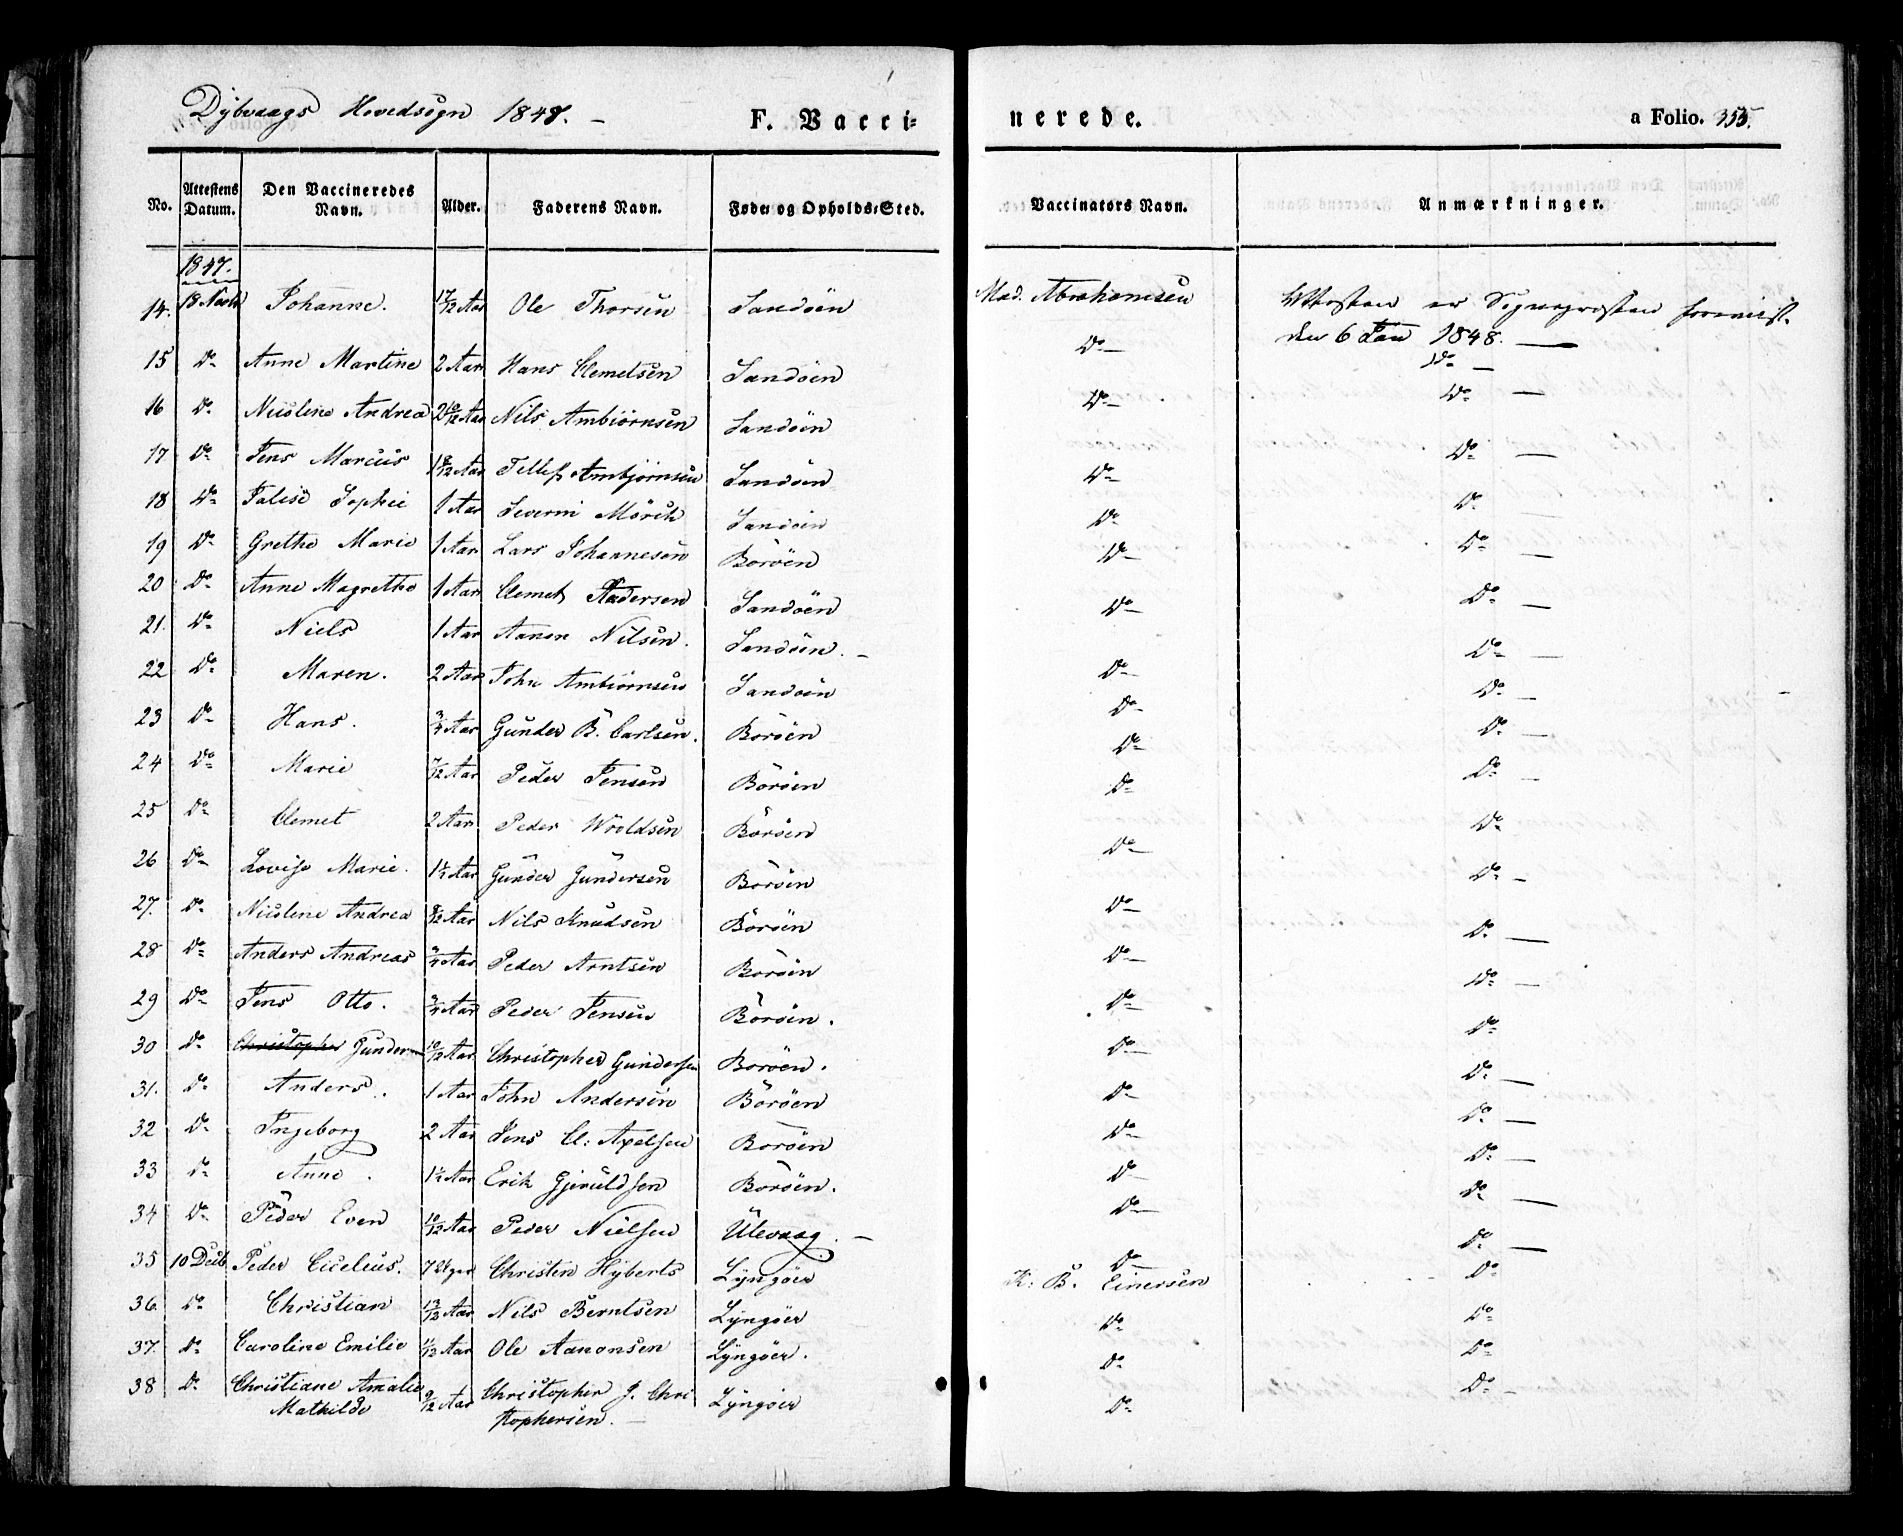 Dybvaags Hovedsogn 1847. –
F. Vacci= nerede. a Folio. 355.
No. Attestens Datum. Den Vaccineredes Navn. Alder. Faderens Navn. Føde og Opholds-Sted. Vaccinators Navn. Anmærkninger.
1847.
14. 18 Johanne. 17/12 Aar Ole Thorsen Sandöen Mad. Abrahamsen Attesten er Sogneprosten forevist
den 6 Jan 1848. —
15 Do Anne Martine 2 Aar Hans Clemetsen Sandöen Do — Do —
16 Do Nicoline Andrea 2 10/12 Aar Nils Ambiörnsen Sandöen Do — Do —
17 Do Jens Marcus 1 8/12 Aar Tellef Ambjörnsen Sandöen Do — Do —
18 Do Sophie 1 Aar Severin Mörch Sandöen Do Do
19 Do Grethe Marie 1 Aar Lars Johannesen Boröen Do — Do —
20 Do Anne Magrethe 1 Aar Clemet Sandöen Do — Do —
21. Do Niels 1 Aar Aanon Nilsen. Sandöen. – Do — Do —
22 Do Maren. 2 Aar John Ambiörnsen Sandöen Do — Do —
23 Do Hans. 3/4 Aar Gunder B. Carlsen. Boröen Do — Do —
24 Do Marie 7/12 Aar Peder Jensen Boröen Do Do —
25 Do Clemet 2 Aar Peder Wroldsen Boröen Do — Do
26 Do Lovise Marie. 1 1/2 Aar Gunder Gundersen Boröen Do — Do –
27. Do Nicoline Andrea 8/12 Aar Nils Knudsen Boröen Do — Do —
28 Do Anders Andreas 3/4 Aar Peder Arntsen Boröen Do — Do —
29 Do Jens Otto. 3/4 Aar Peder Jensen Boröen. Do Do
30 Do Christopher Gunder 10/12 Aar Christopher Gundersen Boröen. Do Do —
31. Do Anders. 1 Aar John Andersen Boröen Do Do —
32 Do Ingeborg 2 Aar Jens Cl: Axelsen Boröen Do Do —
33 Do Anne. 1 1/2 Aar Erik Gjeruldsen Boröen. Do Do —
34 Do Peder Even 10/12 Aar Peder Nielsen Ulevaag. – Do — Do —
35 10 Decb Peder Cicelius. 7 Uger Christen Hyberts Lyngöer K: B. Einersen Do
36. Do Christian 13/12 Aar Nils Berntsen Lyngöer Do Do
37. Do Caroline Emilie 11/12 Aar Ole Aanonsen Lyngöer. Do Do
38 Do Christiane Amalie 9/12 Aar Christopher J. Chri Lyngöer Do Do –
Mathilde stophersen. –